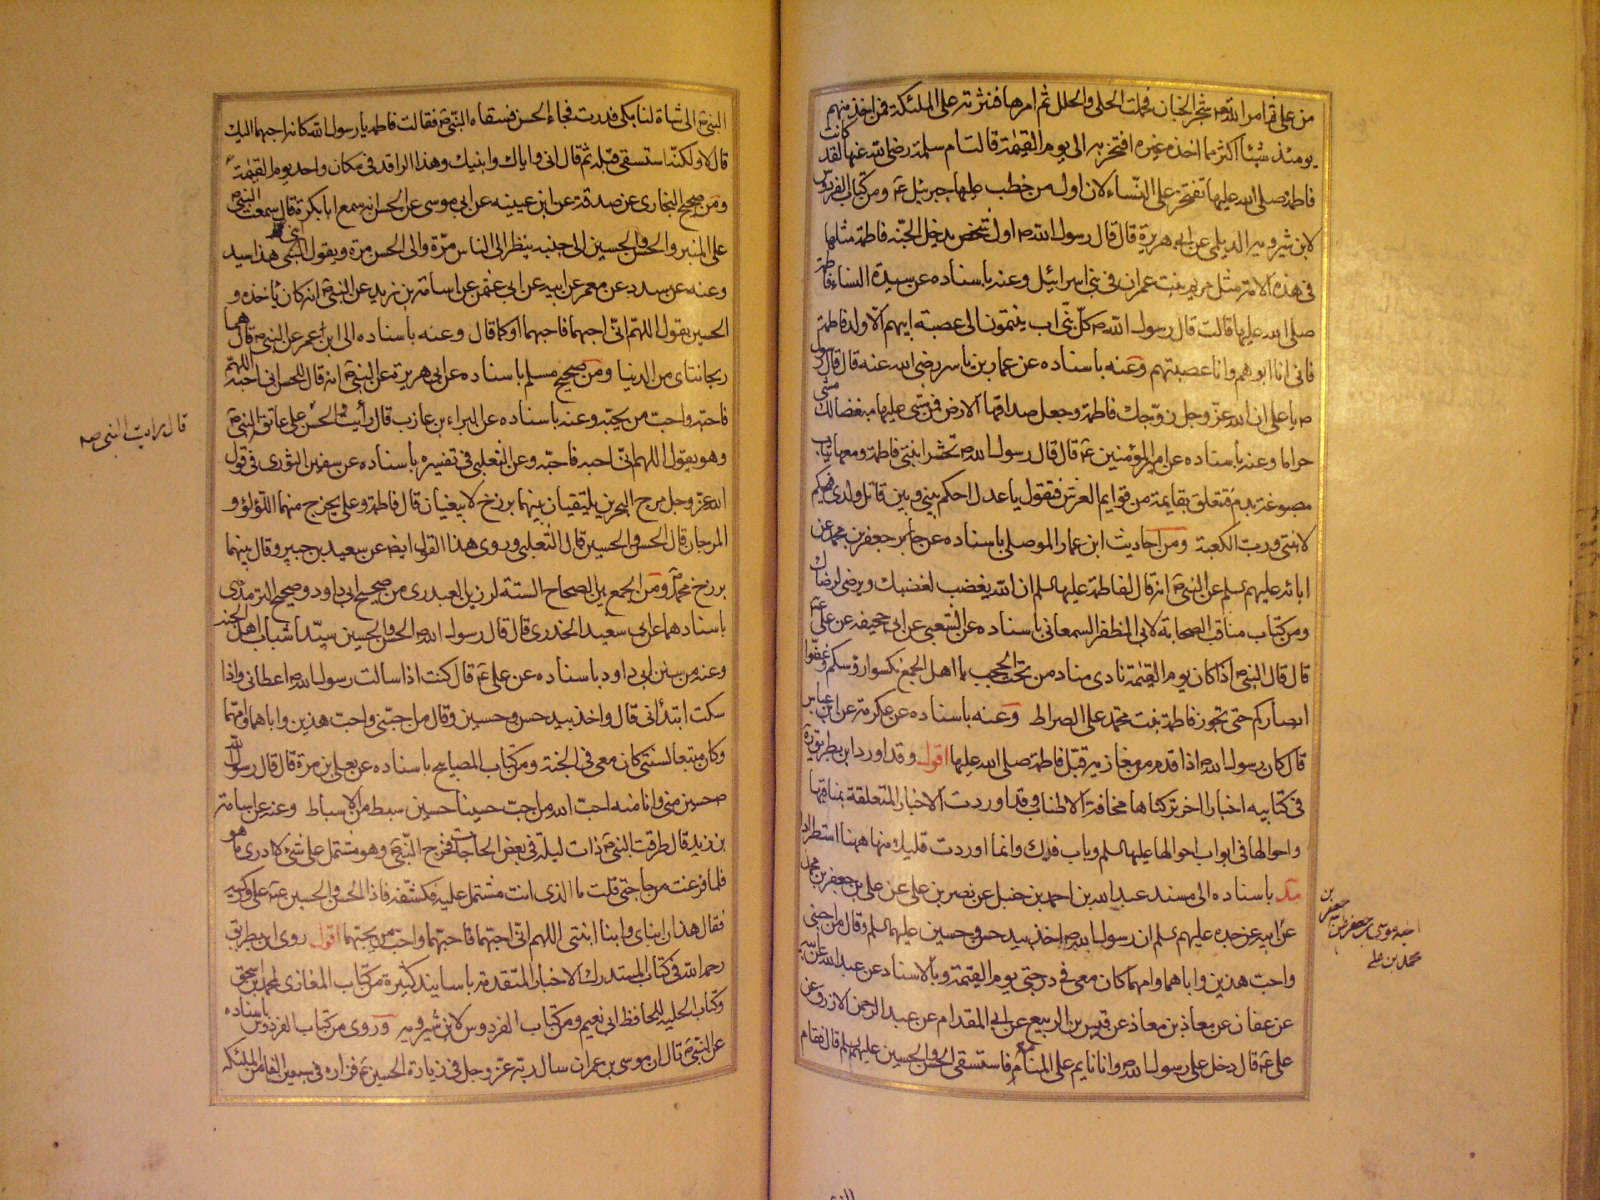 من علي ثم امر الله تع شجر الجنان فحملت الحلي والحلل ثم امرها فنثرته على الملئكة فمن اخذ منهم
يومئذ شيئا اكثر مما اخذه غيره افتخر به الى يوم القيمة قالت ام سلمة رضى الله عنها لقد كانت
فاطمة صلى الله عليها تفتخر على النساء لان اول من خطب عليها جبرئيل ع ومن كتاب الفردوس
لابن شيرويه الديلمي عن ابي هريرة قال قال رسول الله ص اول شخص يدخل الجنة فاطمة مثلها
في هذه الامة مثل مريم بنت عمران في بني اسرائيل وعنه باسناده عن سيدة النساء فاطمة
صلى الله عليها قالت قال رسول الله ص كل بني اب ينتمون الى عصبة ابيهم الا ولد فاطمة
فاني انا ابوهم وانا عصبتهم وعنه باسناده عن عمار بن ياسر رضى الله عنه قال قال رسول
ص يا علي ان الله عز وجل زوجك فاطمة وجعل صداقها الارض فمن مشى عليها مبغضا لك مشى
حراما وعنه باسناده عن امير المؤمنين ع قال قال رسول الله ص تحشر ابنتي فاطمة ومعها ثياب
مصبوغة بدم فتتعلق بقايمة من قوايم العرش فتقول يا عدل احكم بيني وبين قاتل ولدي فيحكم
لابنتي ورب الكعبة ومن احاديث ابن عمار الموصلي باسناده عن جابر جعفر بن محمد عن
ابائه عليهم سلم عن النبي ص انه قال لفاطمة عليها سلم ان الله يغضب لغضبك ويرضى لرضاك
ومن كتاب مناقب الصحابة لابي المظفر السمعاني باسناده عن الشعبي عن ابي جحيفة عن علي ع
قال قال النبي ص اذا كان يوم القيمة نادى مناد من تحت الحجب يا اهل الجمع نكسوا رؤسكم وغضوا
ابصاركم حتى تجوز فاطمة بنت محمد على الصراط وعنه باسناده عن عكرمة عن ابن عباس
قال كان رسول الله ص اذا قدم من مغازيه قبل فاطمة صلى الله عليها اقول وقد اورد ابن بطريق ره
في كتابيه اخبارا اخر تركناها مخافة الاطناب وقد اوردت الاخبار المتعلقة بمناقبها
واحوالها في ابواب احوالها عليها سلم وباب فدك وانما اوردت قليلا منها ههنا استطرادا
مد باسناده الى مسند عبد الله بن احمد بن حنبل عن نصر بن علي عن علي بن جعفر بن محمد
عن ابيه عن جده عليهم سلم ان رسول الله ص اخذ بيد حسن وحسين عليهما سلم وقال من احبني
واحب هذين واباهما وامهما كان معي في درجتي يوم القيمة وبالاسناد عن عبد الله عن ابيه
عن عفان عن معاذ بن معاذ عن قيس بن الربيع عن ابي المقدام عن عبد الرحمن الازرق عن
علي ع قال دخل علي رسول الله ص وانا نايم على المنامة فاستسقى الحسن والحسين عليهما سلم قال فقام
اخيه موسى بن جعفر عن
محمد بن علي
النبي ص الى شاة لنا بكي فدرت فجاء الحسن فسقاه النبي ص فقالت فاطمة يا رسول الله كانه احبهما اليك
قال لا ولكنه استسقى قبله ثم قال اني واياك وابنيك وهذا الراقد في مكان واحد يوم القيمة
ومن صحيح البخاري عن صدقة عن ابن عيينه عن ابي موسى عن الحسن انه سمع ابا بكرة قال سمعت النبي ص
على المنبر والحسن والحسين الى جنبه ينظر الى الناس مرة والى الحسن مرة ويقول ابني هذا سيد
وعنه عن مسدد عن معمر عن ابيه عن ابي عثمن عن اسامة بن زيد عن النبي ص انه كان ياخذه و
الحسين يقول اللهم اني احبهما فاحبهما او كما قال وعنه باسناده الى ابن عمر عن النبي ص قال هما
ريحانتاي من الدنيا ومن صحيح مسلم باسناده عن ابي هريرة عن النبي ص انه قال للحسن اني احبه اللهم
فاحبه واحب من يحبه وعنه باسناده عن البراء بن عازب قال رأيت الحسن على عاتق النبي ص
وهو يقول اللهم اني احبه فاحبه وعن الثعلبي في تفسيره باسناده عن سفين الثوري في قول
الله عز وجل مرج البحرين يلتقيان بينهما برزخ لا يبغيان قال فاطمة وعلي يخرج منهما اللؤلؤ و
المرجان قال الحسن والحسين قال الثعلبي وروى هذا القول ايضا عن سعيد بن جبير وقال بينهما
برزخ محمد ص ومن الجمع بين الصحاح الستة لرزين العبدري من صحيح ابي داود وصحيح الترمذي
باسنادهما عن ابي سعيد الخدري قال قال رسول الله ص الحسن والحسين سيدا شباب اهل الجنة
وعنه من سنن ابي داود باسناده عن علي ع قال كنت اذا سالت رسول الله ص اعطاني واذا
سكت ابتدأني قال واخذ بيد حسن وحسين وقال من احبني واحب هذين واباهما وامهما
وكان متبعا لسنتي كان معي في الجنة ومن كتاب المصابيح باسناده عن يعلى بن مرة قال قال رسول الله
ص حسين مني وانا منه احب الله من احب حسينا حسين سبط من الاسباط وعنه عن اسامة
بن زيد قال طرقت النبي ص ذات ليلة في بعض الحاجات فخرج النبي ص وهو مشتمل على شيء لا ادري ما هو
فلما فرغت من حاجتي قلت ما الذي انت مشتمل عليه فكشفه فاذا الحسن والحسين ع على وركيه
فقال هذان ابناي وابنا ابنتي اللهم اني احبهما فاحبهما واحب من يحبهما اقول روى ابن بطريق
رحمه الله في كتاب المستدرك الاخبار المتقدمة باسانيد كثيرة من كتاب المغازي لمحمد بن اسحق
وكتاب الحلية للحافظ ابي نعيم ومن كتاب الفردوس لابن شيرويه وروى من كتاب الفردوس باسناده
عن النبي ص قال ان موسى بن عمران سال ربه عز وجل في زيارة الحسين ع فزاره في سبعين الفا من الملئكة
قال رايت النبي ص